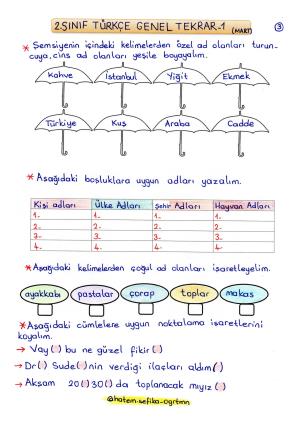 2.SINIF TÜRKÇE GENEL TEKRAR-1 (MART)
3
* Şemsiyenin içindeki kelimelerden özel ad olanları turun-
cuya, cins ad olanları yeşile boyayalım.
Kahve İstanbul Yiğit Ekmek
Türkiye Kuş Araba Cadde
* Aşağıdaki boşluklara uygun adları yazalım.
Kişi adları Ülke Adları Şehir Adları Hayvan Adları
1- 1- 1- 1-
2- 2- 2- 2-
3- 3- 3- 3-
4- 4- 4- 4-
* Aşağıdaki kelimelerden çoğul ad olanları işaretleyelim.
ayakkabı pastalar çorap toplar makas
* Aşağıdaki cümlelere uygun noktalama işaretlerini
koyalım.
→ Vay ( ) bu ne güzel fikir ( )
→ Dr( ) Sude( )nin verdiği ilaçları aldım( )
→ Akşam 20( )30( )da toplanacak mıyız ( )
@hatem.sefika_ogrtmn